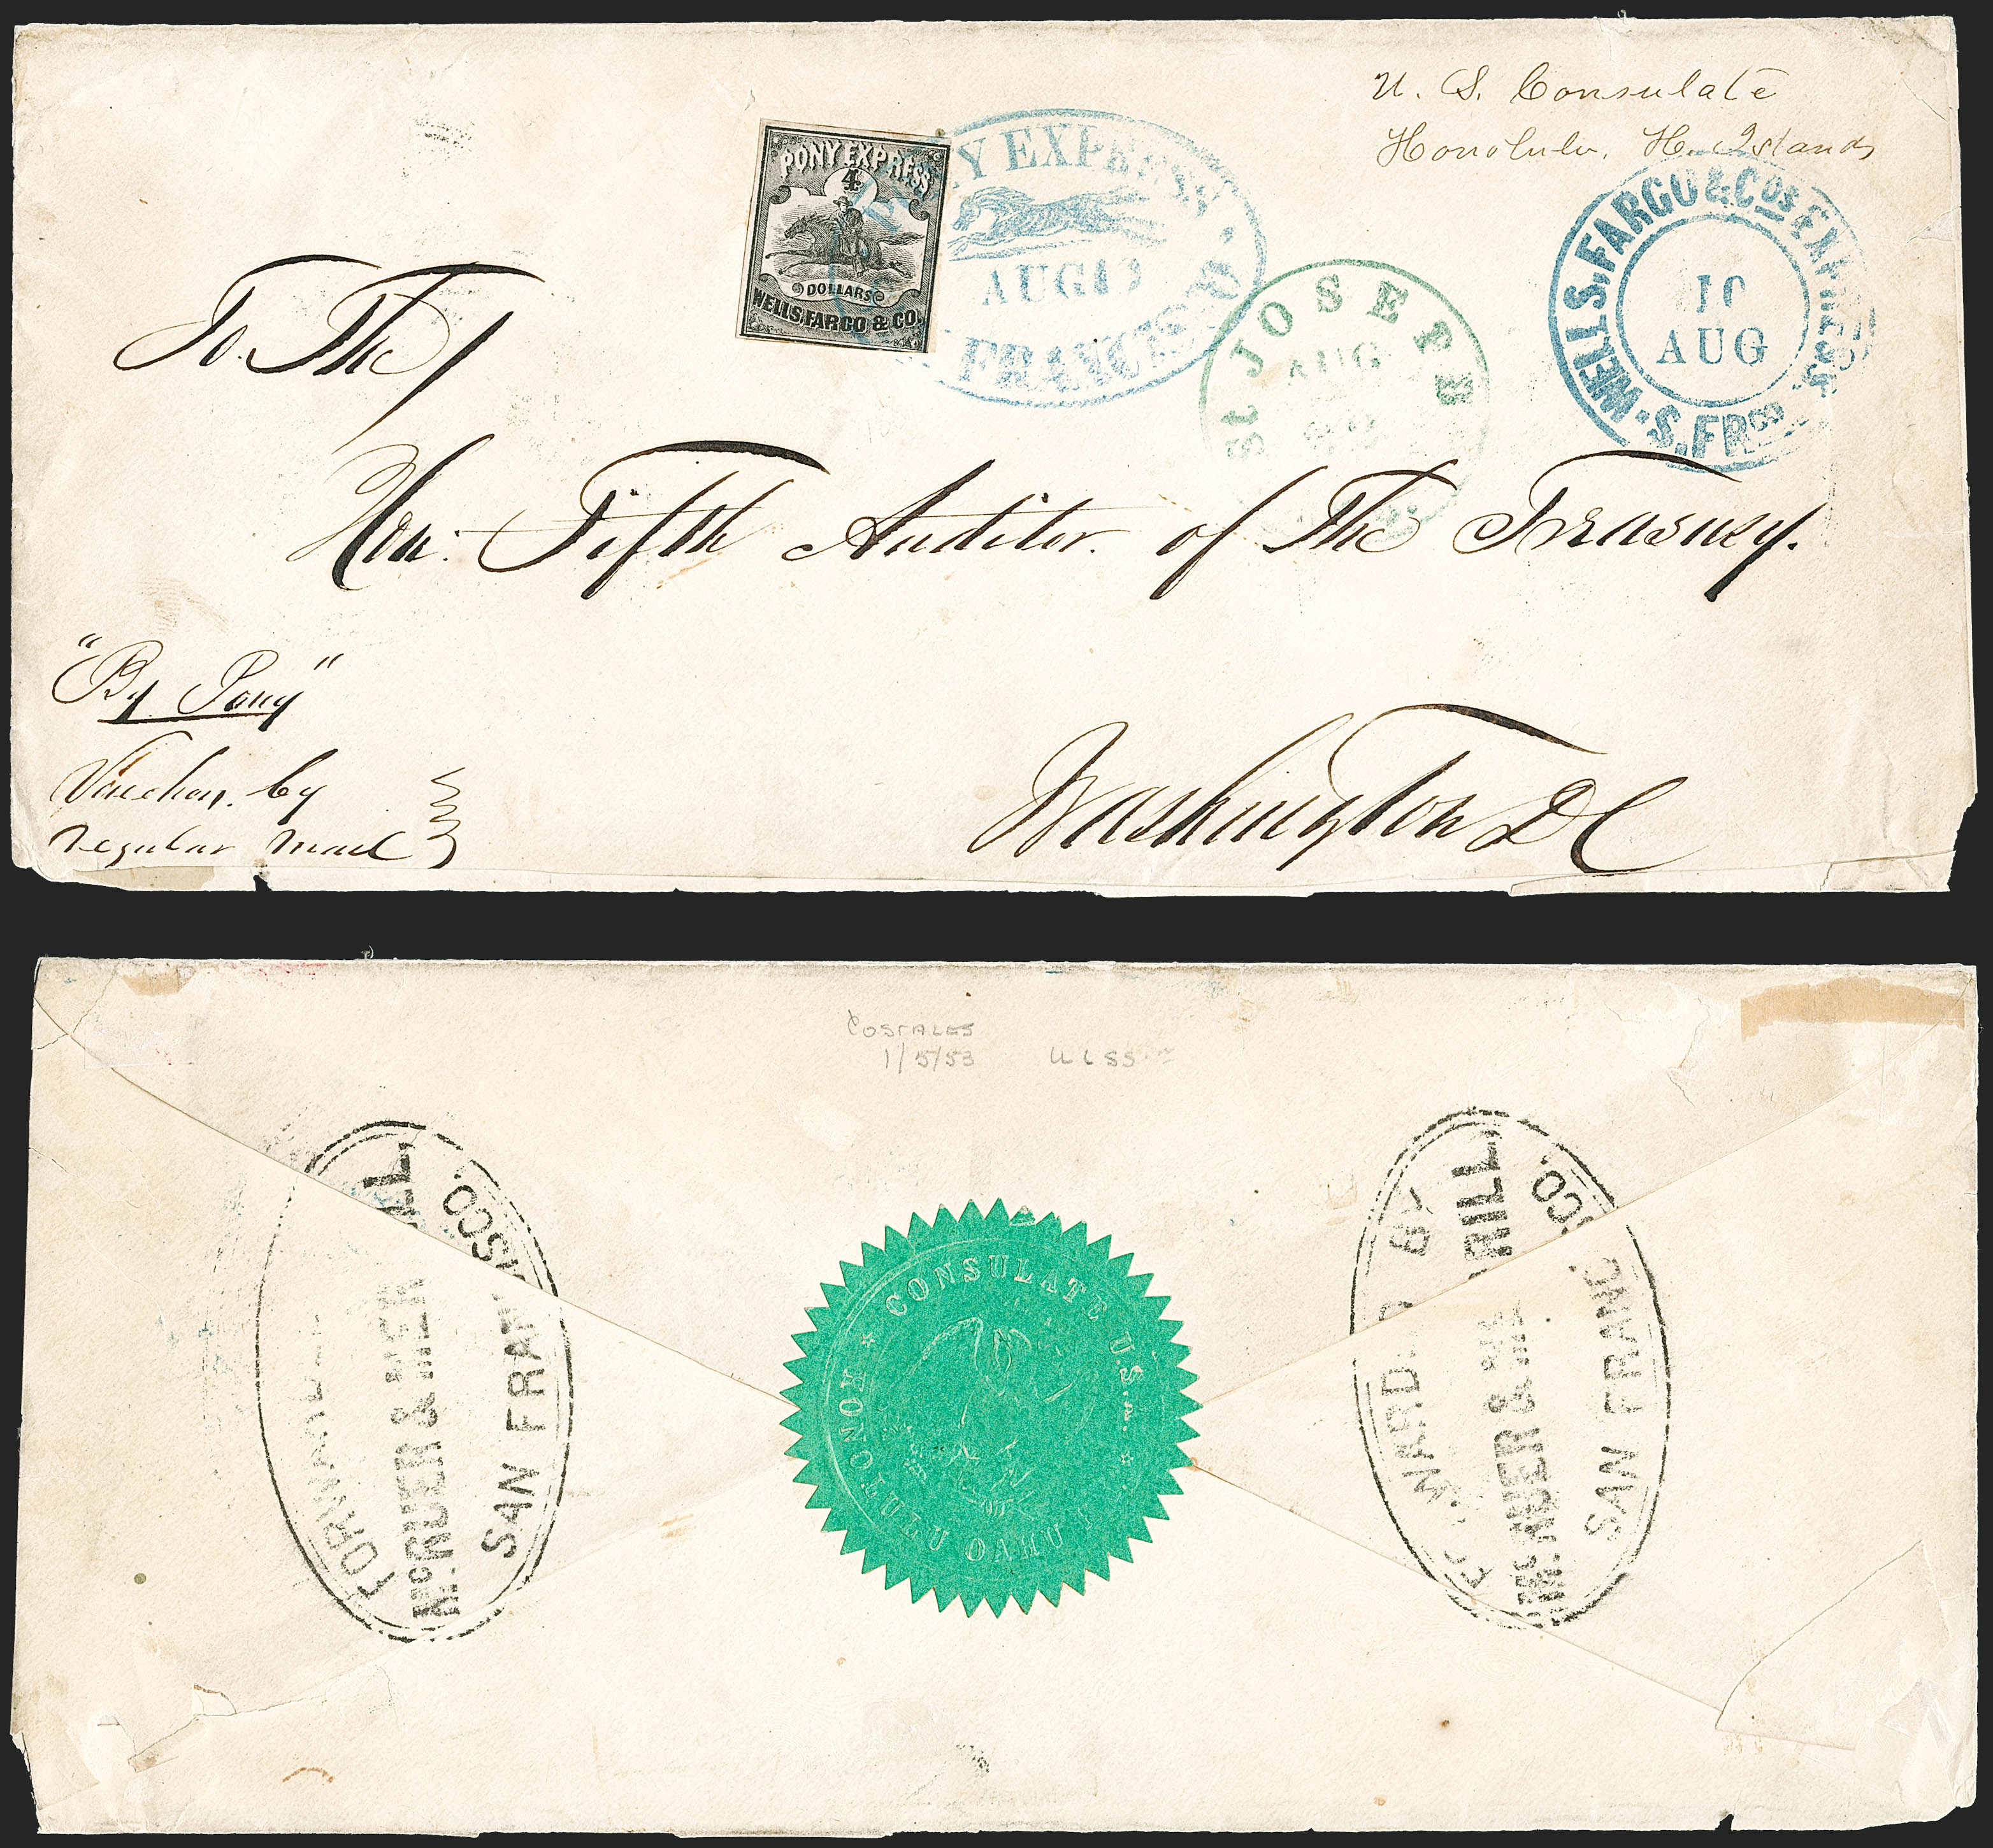 U. S. Consulate
Honolulu, H. Islands
PONY EXPRESS
4
DOLLARS
WELLS, FARGO & CO.
Y EXPRESS
AUG 1
FRANCISCO
St JOSEPH
AUG
WELLS, FARGO & Cos EXPRESS
10
AUG
S. FRco
To The
Hon: Fifth Auditor of The Treasury.
"By Pony"
Vouchers by
regular mail
Washington DC
COSTALES
1/5/53
FORWARD
McRUER & MER LL
SAN FRA ISCO.
CONSULATE U.S.
HONOLULU OAHU
FORWARD BY
McRUER & ME RILL
SAN FRANC SCO.